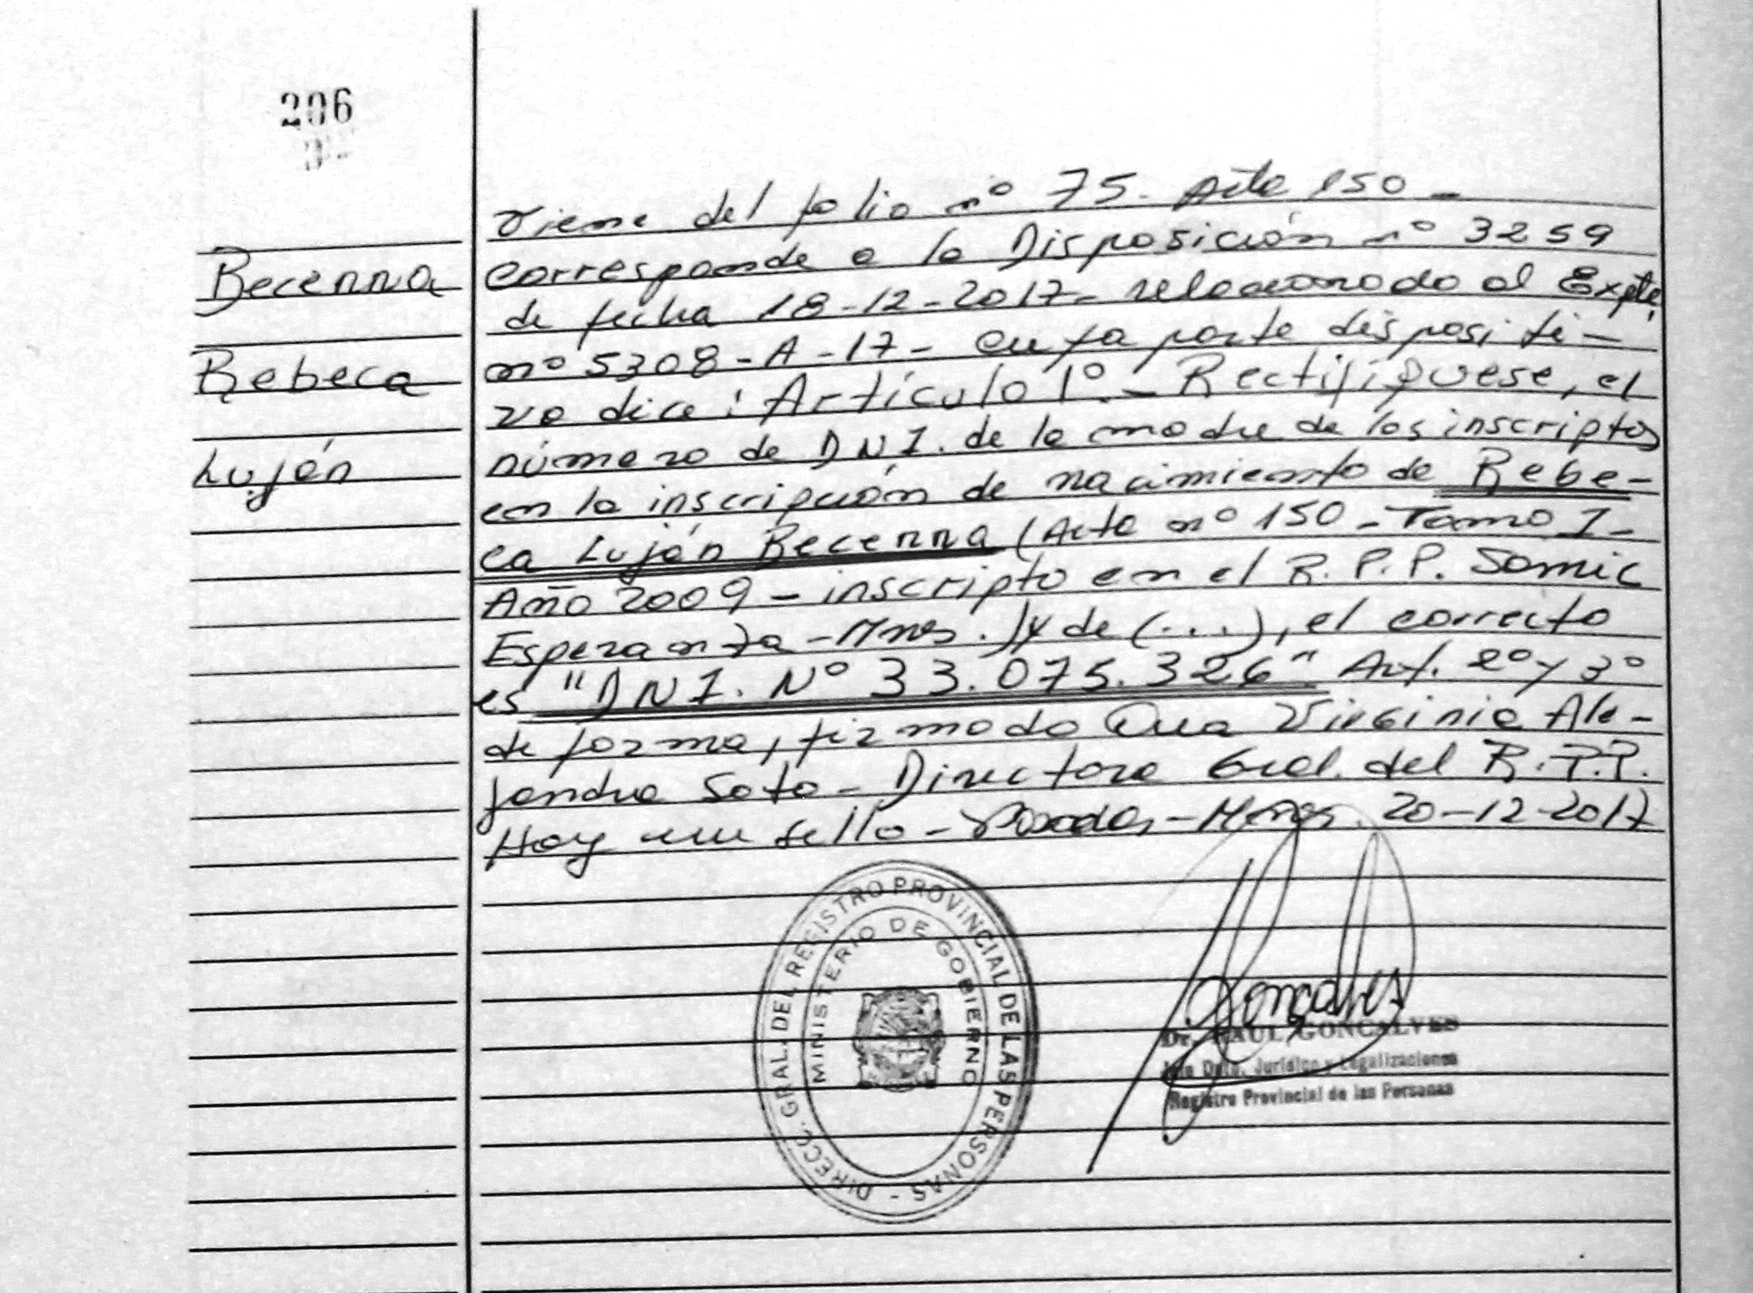 206
Becerra
Rebeca
Luján
Viene del folio nº 75. Acta 150 -
corresponde a la Disposición nº 3259
de fecha 18-12-2017- relacionado al Expte.
nº 5308-A-17- cuya parte dispositi-
va dice: Artículo 1º.- Rectifíquese, el
número de DNI. de la madre de los inscriptos
en la inscripción de nacimiento de Rebe-
ca Luján Becerra (Acta nº 150 - Tomo I -
Año 2009 - inscripto en el R.P.P. Samic
Esperanza - Mnes.) y de (...), el correcto
es "DNI. Nº 33.075.326" Art. 2º y 3º
de forma, firmado Dra Virginia Ale-
jandra Soto - Directora Gral. del R.P.P.
Hay un sello - Posadas - Mnes. 20-12-2017
DIRECC. GRAL. DEL REGISTRO PROVINCIAL DE LAS PERSONAS -
MINISTERIO DE GOBIERNO
Goncalves
Dr. RAUL GONCALVES
Dpto. Jurídico y Legalizaciones
Registro Provincial de las Personas